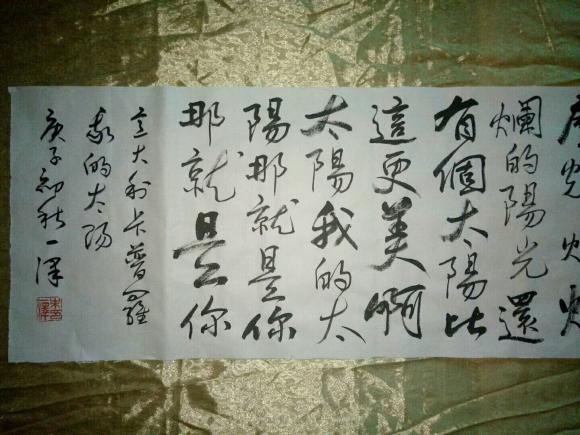 爛的陽光還
有個太陽比
這更美啊
太陽我的太
陽那就是你
那就是你
意大利卡普羅
我的太陽
庚子初秋一泽